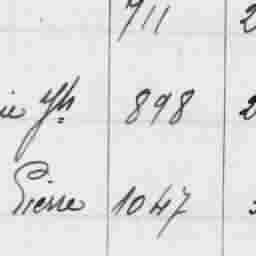 711 2
ie Jh 898 2
Pierre 1047